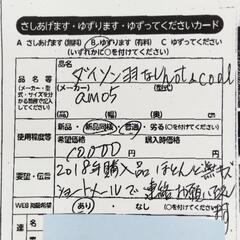 さしあげます・ゆずります・ゆずってくださいカード
A さしあげます(無料) B ゆずります(有料) C ゆずってください
(いずれかに○を付けてください)
品名等
(メーカー・型式・サイズを分かる範囲で記入してください)
(品名)
ダイソン羽なしhot&cool
(メーカー) (型式)
am05
使用程度等
(新品・新品同様・普通・劣る(○を付けてください))
希望価格 購入価格
10000円
要望・伝言
2018年購入品 ほとんど無キズ
ショートメールで連絡お願いします
WEB掲載希望 あり・なし(○を付けてください)